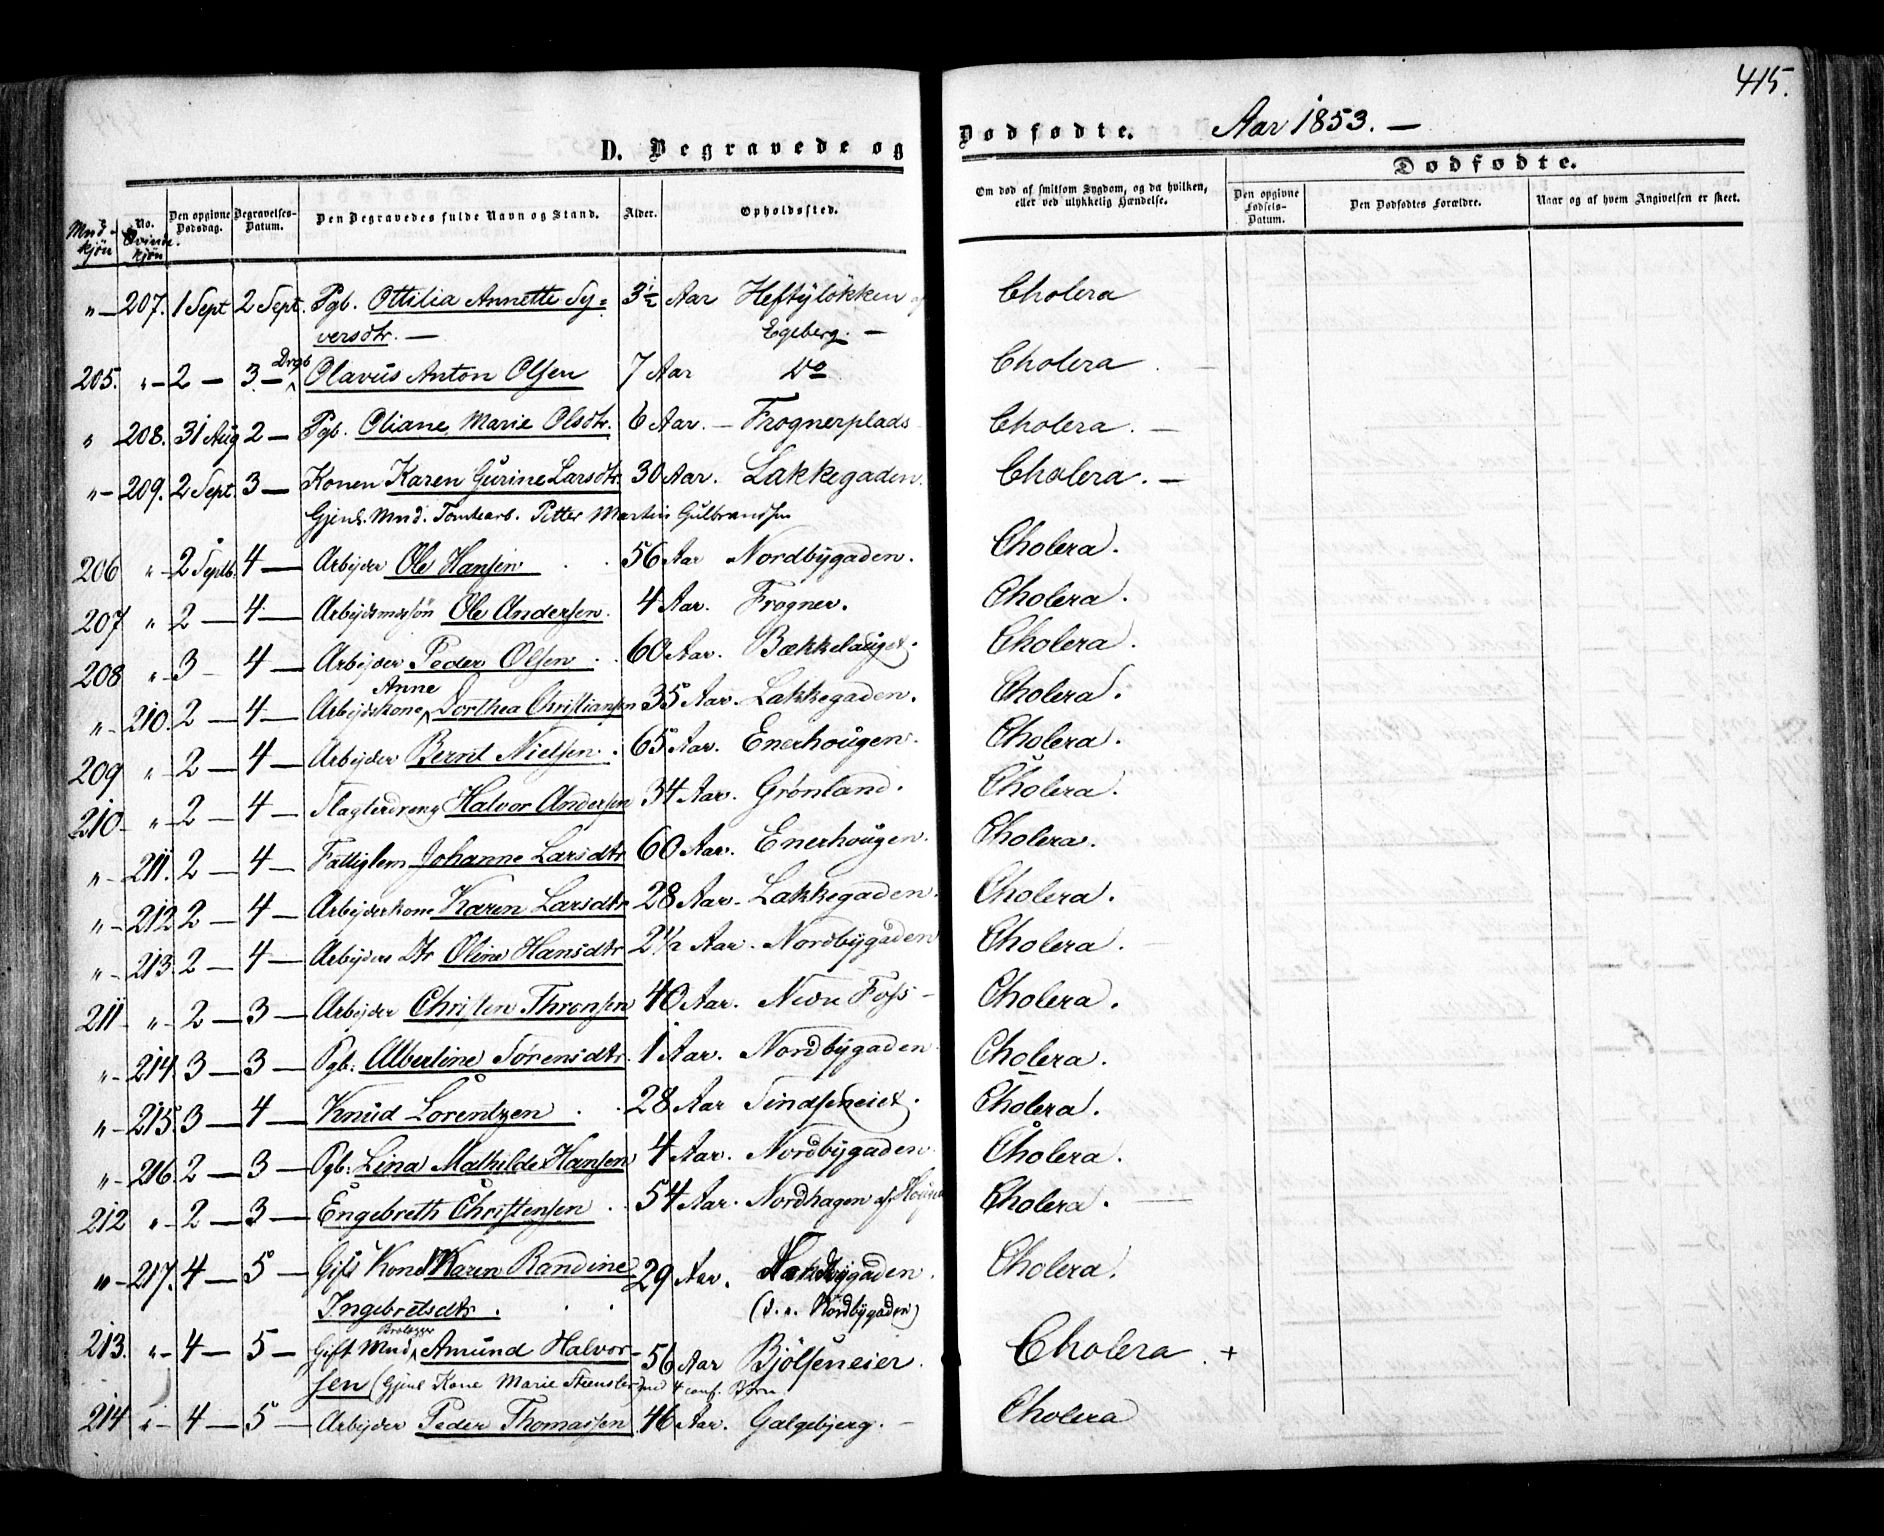 415.
D. Begravede og Dødfødte. Aar 1853. —
Mnd-kjøn
No. Qvinde-kjøn.
Den opgivne Dødsdag.
Begravelses-Datum.
Den Begravedes fulde Navn og Stand.
Alder.
Opholdssted.
Om død af smitsom Sygdom, og da hvilken, eller ved ulykkelig Hændelse.
Dødfødte.
Den opgivne Fødsels-Datum.
Den Dødfødtes Forældre.
Naar og af hvem Angivelsen er skeet.
" — 207. 1 Sept 2 Sept. Pgb. Ottilia Annette Sy= 3½ Aar Heftyløkken af Cholera
versdtr. — Egeberg. —
205. " — 2 — 3 — Drgb Olavus Anton Olsen 7 Aar Do Cholera
" 208. 31 Aug 2 — Pgb. Oliane Marie Olsdtr. 6 Aar. — Frognerplads Cholera. —
" — 209. 2 Sept. 3 — Konen Karen Gurine Larsdtr. 30 Aar. Lakkegaden. Cholera. —
Gjenl. Mnd. Tomtearb. Petter Martin Gulbrandsen
206 " — 2 Septb. 4 — Arbejder Ole Hansen 56 Aar Nordbygaden. Cholera.
207 " 2 — 4 — Arbejdsmdsøn Ole Andersen. 4 Aar. Frogner. Cholera.
208 " — 3 — 4 — Arbejder Peder Olsen. 60 Aar. Bækkelauget. Cholera.
" — 210. 2 — 4 — Arbejdskone Anne Dorthea Christiansen 35 Aar. Lakkegaden. Cholera.
209 " 2 — 4 — Arbejder Bernt Nielsen. 65 Aar. Enerhougen. Cholera.
210 — " — 2 — 4 — Slagterdreng Halvor Andersen 34 Aar. Grønland. Cholera.
" — 211. 2 — 4 — Fattiglem Johanne Larsdtr 60 Aar. Enerhougen. Cholera.
" — 212 2 — 4 — Arbejderkone Karen Larsdtr 28 Aar. Lakkegaden. Cholera.
" — 213. 2 — 4 — Arbejders Dtr Oline Hansdtr 2½ Aar. Nordbygaden Cholera.
211 — " — 2 — 3 — Arbejder Christen Thronsen 40 Aar. Nedre Foss — Cholera.
" — 214. 3 — 3 — Pgb: Albertine Sørensdtr. 1 Aar. Nordbygaden. Cholera.
" — 215. 3 — 4 — Knud Lorentzen 28 Aar Cholera.
" — 216. 2 — 3 — Pgb: Lina Mathilde Hansen 4 Aar. Nordbygaden. Cholera.
212 " — 2 — 3 — Engebreth Christensen 54 Aar. Nordhagen af Cholera.
" — 217. 4 — 5 — Gift Kone Karen Randine 29 Aar. Cholera.
Ingebretsdtr. (d. e. Nordbygaden)
213. " — 4 — 5 — Gift Mnd. Brolægger Amund Halvor- 56 Aar Bjølseneier. Cholera. +
sen (Gjenl Kone Marie Steensler med 4 conf. Børn.
214 " — 4 — 5 — Arbejder Peder Thomassen. 46 Aar. Galgebjerg. — Cholera